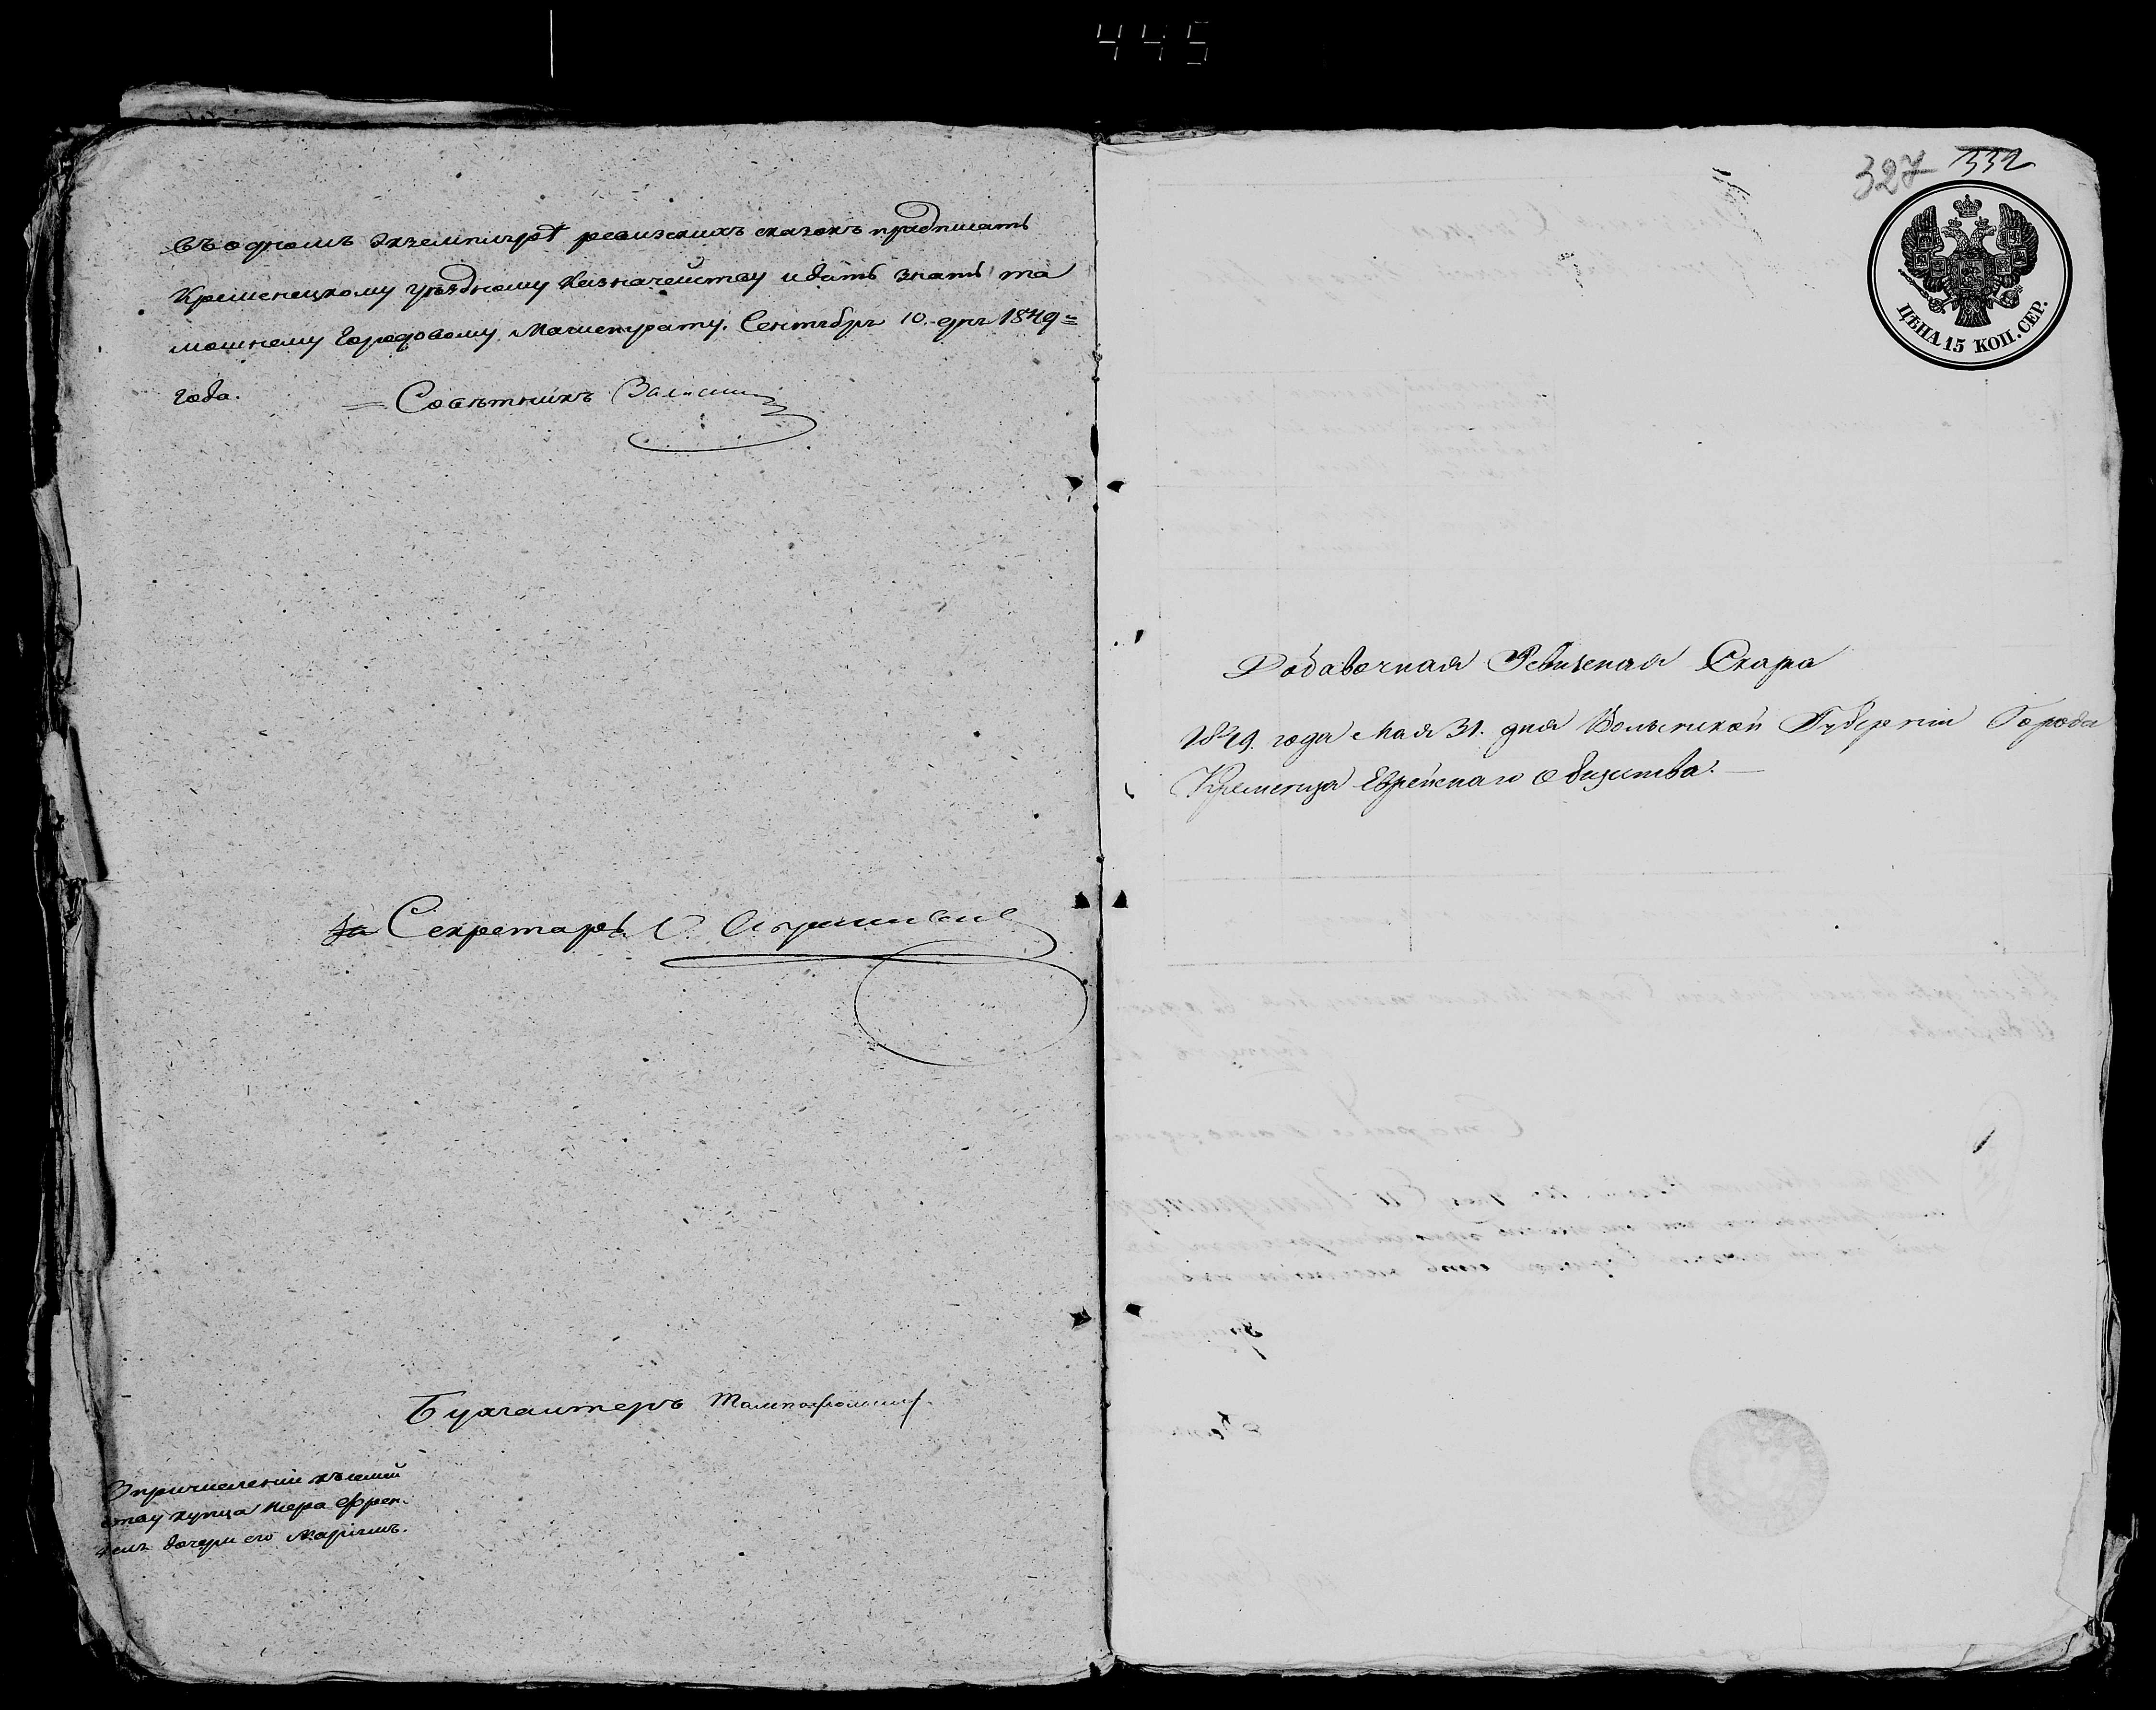 445
въ одномъ экземплярѣ ревизскихъ сказокъ предписать
Кременецкому уѣздному Казначейству и дать знать та
мошнему Городовому Магистрату. Сентября 10. дня 1849=
года.
= Совѣтникъ
За Секретаря
Бухгалтеръ
О причисленіи къ семей
ству купца Мера Френ
келя дочери его Маріимъ.
327 332
ЦѢНА 15 КОП. СЕР.
Добавочная Ревизская Скаска
1849. года Мая 31. дня Волынской Губерніи Города
Кременца Еврейскаго Общества.